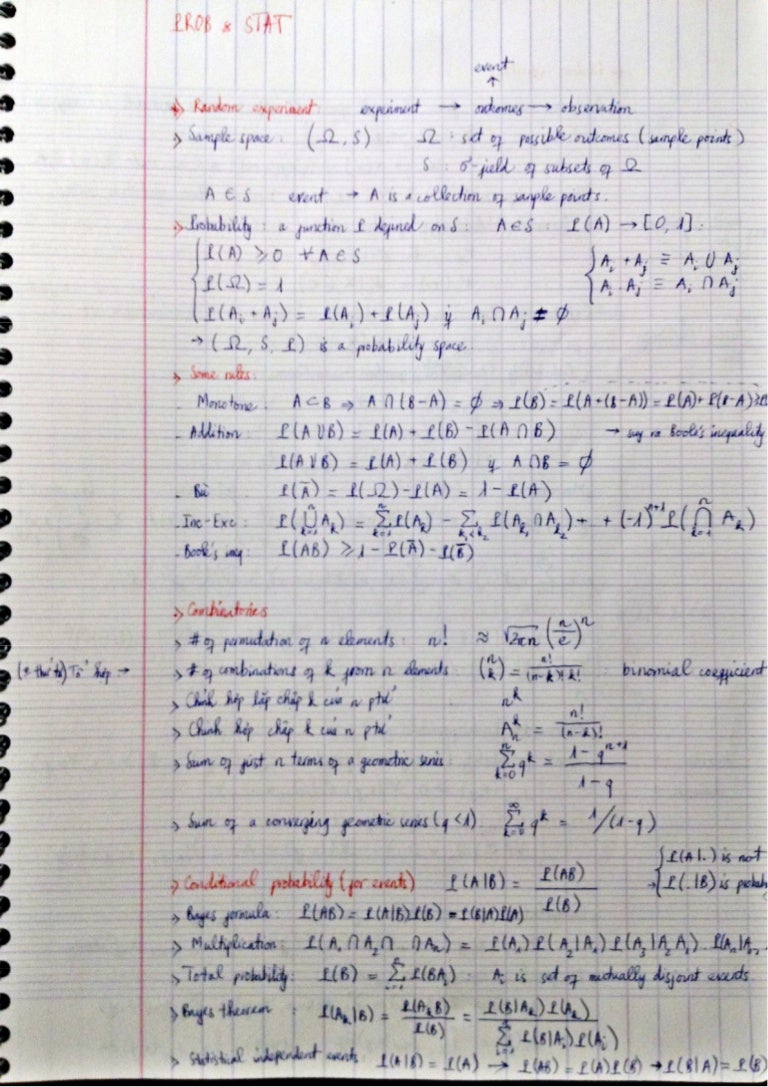 PROB & STAT
event
↑
> Random experiment: experiment → outcomes → observation
> Sample space: (Ω, S) Ω: set of possible outcomes (sample points)
S: σ-field of subsets of Ω
A ∈ S event → A is a collection of sample points.
> Probability: a function P defined on S: A ∈ S: P(A) → [0, 1].
{ P(A) ≥ 0 ∀A ∈ S
P(Ω) = 1
P(A_i + A_j) = P(A_i) + P(A_j) if A_i ∩ A_j ≠ ∅
{ A_i + A_j ≡ A_i ∪ A_j
A_i . A_j ≡ A_i ∩ A_j
→ (Ω, S, P) is a probability space.
> Some rules:
- Monotone: A ⊂ B ⇒ A ∩ (B-A) = ∅ ⇒ P(B) = P(A+(B-A)) = P(A) + P(B-A) ≥ P(
- Addition: P(A ∪ B) = P(A) + P(B) - P(A ∩ B) → suy ra Boole's inequality
P(A ∪ B) = P(A) + P(B) if A ∩ B = ∅
- Bù P(Ā) = P(Ω) - P(A) = 1 - P(A)
- Inc-Exc: P(⋃_{k=1}^{n} A_k) = ∑_{k=1}^{n} P(A_k) - ∑_{k_1<k_2} P(A_{k_1} ∩ A_{k_2}) + .. + (-1)^{n+1} P(⋂_{k=1}^{n} A_k)
- Boole's inq: P(AB) ≥ 1 - P(Ā) - P(B̄)
> Combinatorics
> # of permutation of n elements: n! ≈ √2πn (n/e)^n
Tổ hợp → > # of combinations of k from n elements: (n k) = n!/(n-k)! k! : binomial coefficient
> Chỉnh hợp lặp chập k của n ptử n^k
> Chỉnh hợp chập k của n ptử A_n^k = n!/(n-k)!
> Sum of first n terms of a geometric series: ∑_{k=0}^{n} q^k = (1 - q^{n+1})/(1 - q)
> Sum of a converging geometric series (q<1) ∑_{k=0}^{∞} q^k = 1/(1-q)
> Conditional probability (for events) P(A|B) = P(AB)/P(B)
→ { P(A|.) is not
P(.|B) is probab
> Bayes formula: P(AB) = P(A|B)P(B) = P(B|A)P(A)
> Multiplication: P(A_1 ∩ A_2 ∩ .. ∩ A_n) = P(A_1) P(A_2|A_1) P(A_3|A_2 A_1) .. P(A_n|A_n-
> Total probability: P(B) = ∑_{i=1}^{n} P(BA_i) : A_i is set of mutually disjoint events.
> Bayes theorem : P(A_k|B) = P(A_k B)/P(B) = P(B|A_k) P(A_k) / ∑_{i=1}^{n} P(B|A_i) P(A_i)
> Statistical independent events: P(A|B) = P(A) → P(AB) = P(A) P(B) → P(B|A) = P(B)